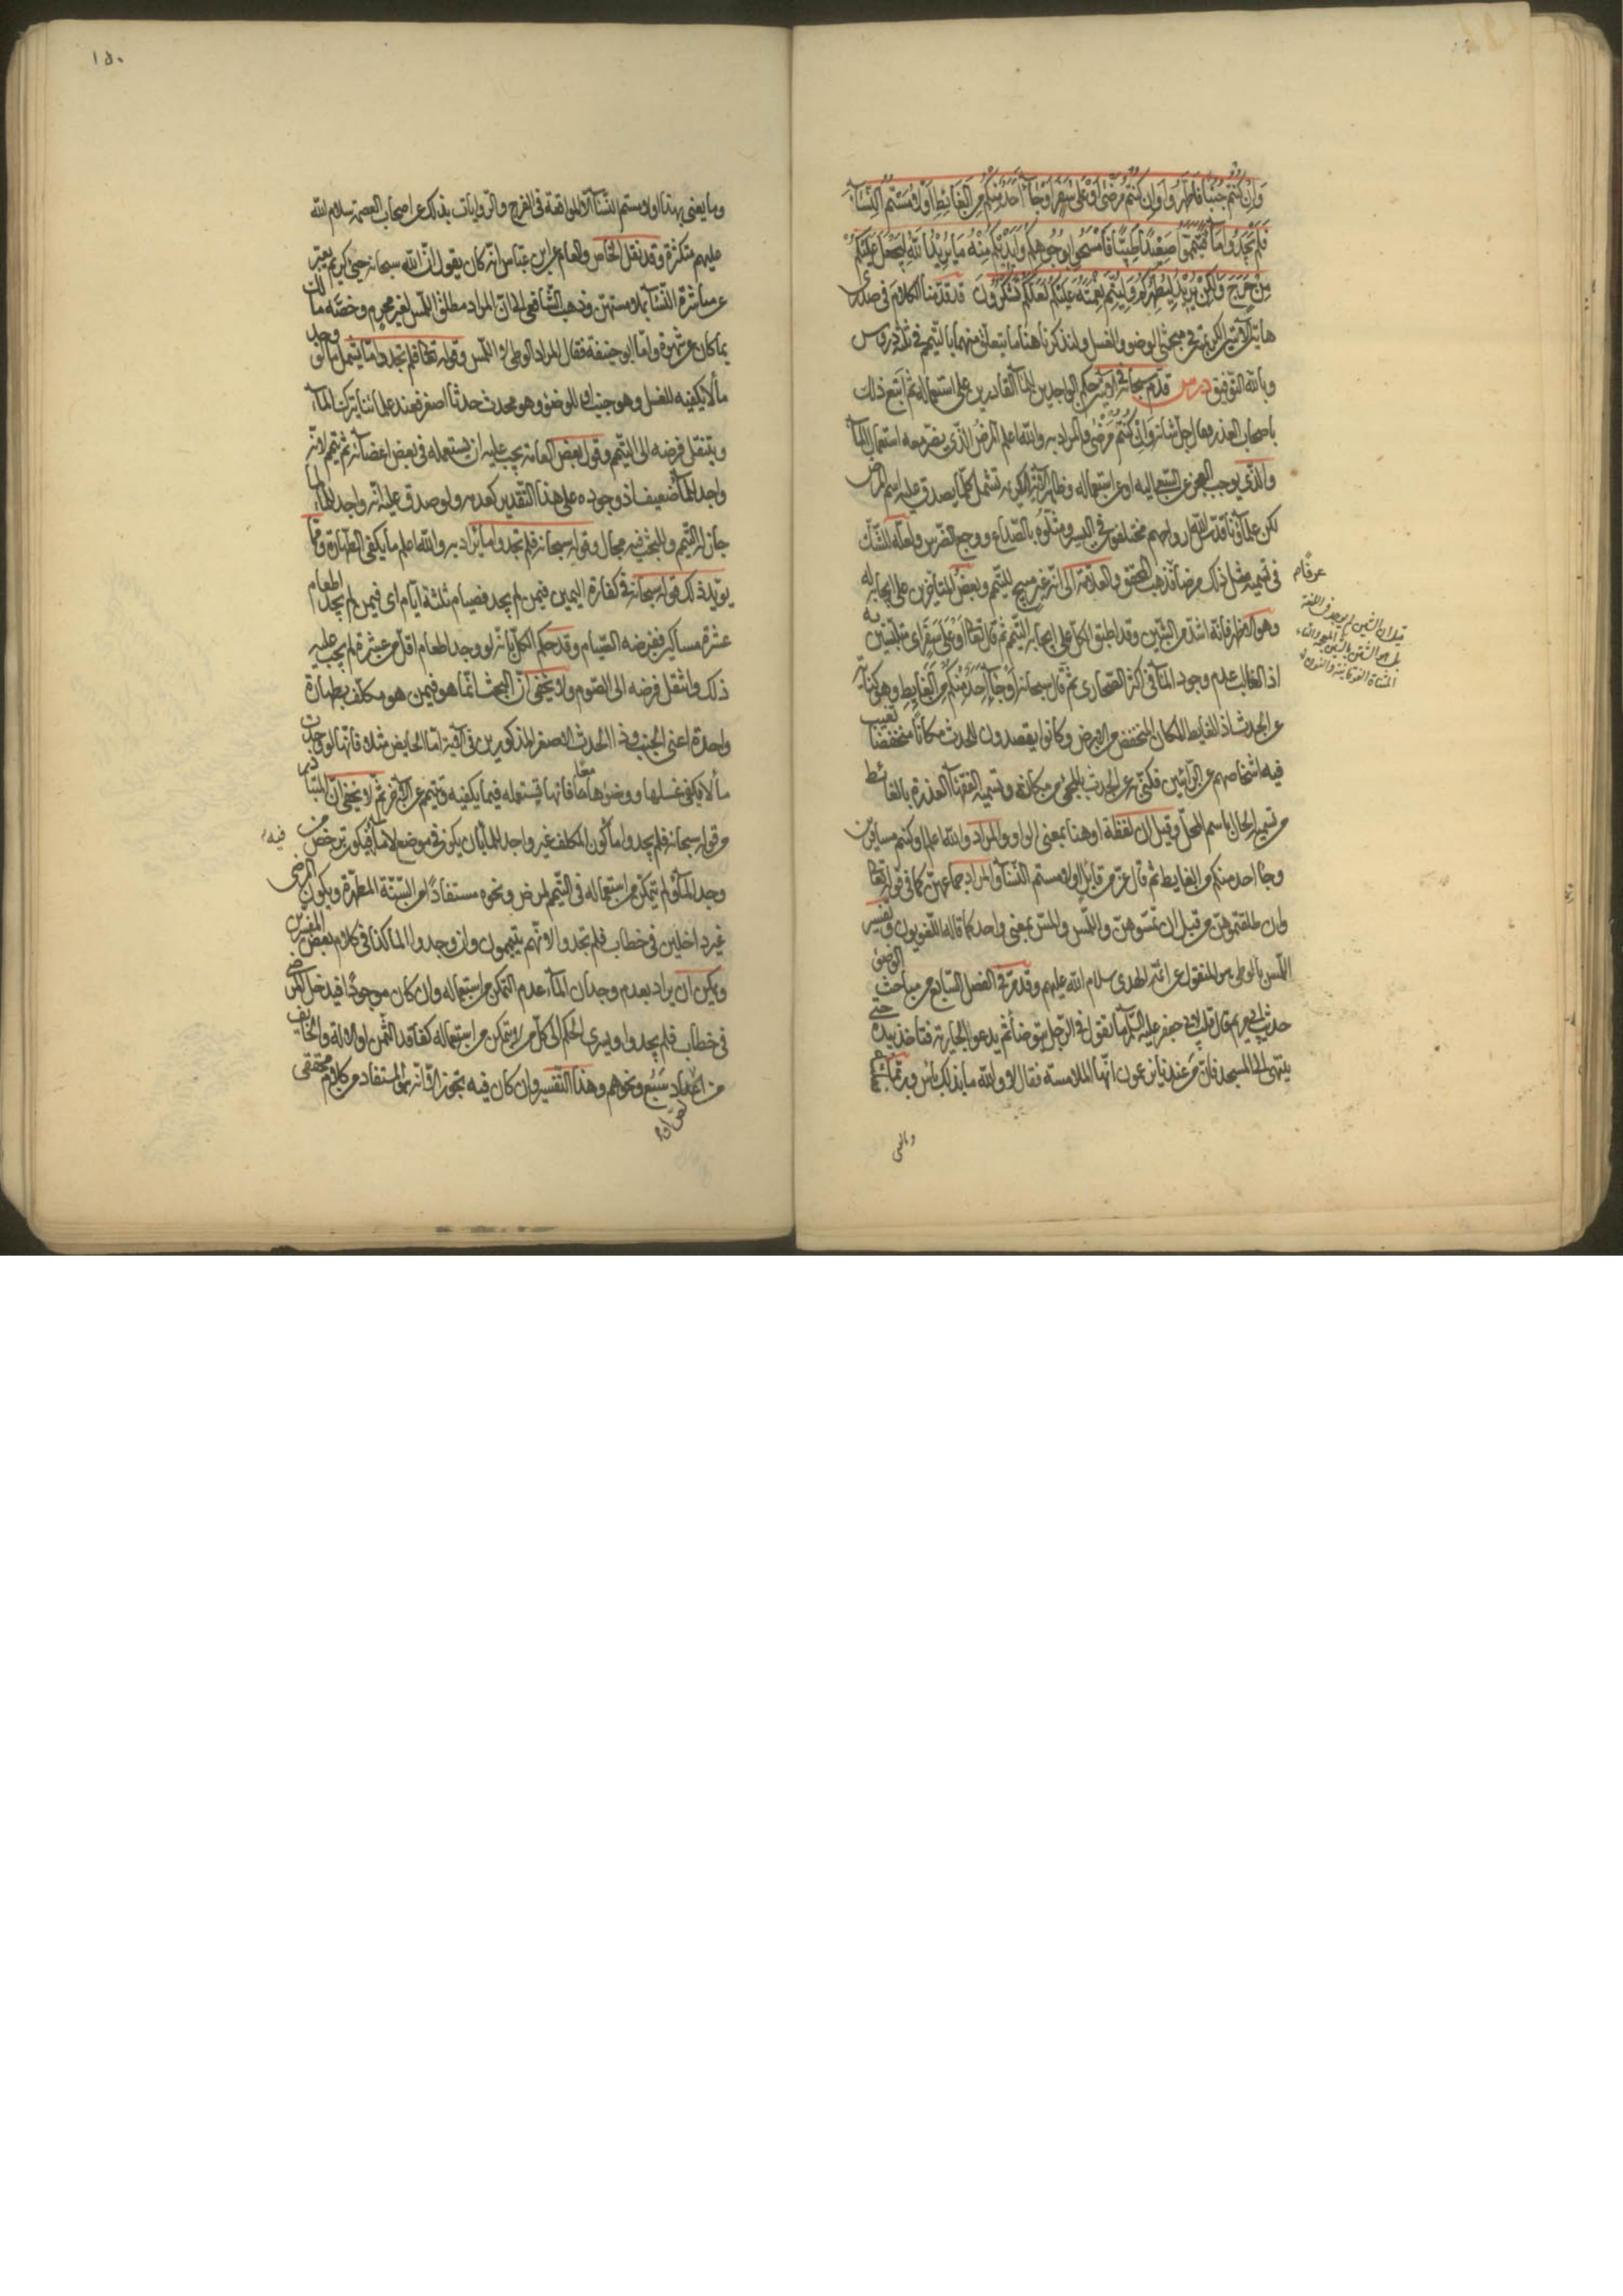 وَاِنْ كُنْتُمْ جُنُبًا فَاطَّهَّرُوا وَاِنْ كُنْتُمْ مَرْضٰى اَوْ عَلٰى سَفَرٍ اَوْ جَاۤءَ اَحَدٌ مِنْكُمْ مِنَ الْغَائِطِ اَوْ لٰمَسْتُمُ النِّسَاۤءَ
فَلَمْ تَجِدُوا مَاۤءً فَتَيَمَّمُوا صَعِيْدًا طَيِّبًا فَامْسَحُوا بِوُجُوهِكُمْ وَاَيْدِيْكُمْ مِنْهُ مَا يُرِيْدُ اللّٰهُ لِيَجْعَلَ عَلَيْكُمْ
مِنْ حَرَجٍ وَلٰكِنْ يُرِيْدُ لِيُطَهِّرَكُمْ وَلِيُتِمَّ نِعْمَتَهُ عَلَيْكُمْ لَعَلَّكُمْ تَشْكُرُونَ قد قدّمنا الكلام في صدري
هاتين الآيتين الكريمتين في مبحثي الوضوء والغسل ولنذكر هاهنا ما يتعلق منهما بالتيمم في ثلثة دروس
وبالله التوفيق درس قدّم سبحانه في الآيتين حكم الواجدين للمآء القادرين على استعماله ثم اتبع ذلك
باصحاب العذر فقال جلّ شانه وَاِنْ كُنْتُمْ مَرْضٰى والمراد به والله اعلم المرض الذي يضرّ معه استعمال المآء
والذي يوجب العجز عن السعي اليه او عن استعماله وظاهر الآية الكريمة تشمل كلما يصدق عليه اسم المرض
لكن علمآؤنا قدّس الله ارواحهم مختلفون في اليسير ومثلوه بالصّداع ووجع الضرس ولعله للشك
في تسمية مثل ذلك مرضا عرفًا فذهب المحقق والعلامة الى انه غير مبيح للتيمم وبعض المتاخرين على ايجابه له
وهو الاظهر فانّه اشدّ من الشين وقد اطبق الكل على ايجابه التيمم ثم قال تعالى اَوْ عَلٰى سَفَرٍ اى متلبسين به
اذ الغالب عدم وجود المآء في اكثر الصحاري ثم قال سبحانه اَوْ جَاۤءَ اَحَدٌ مِنْكُمْ مِنَ الْغَائِطِ وهو كناية
عن الحدث اذ الغايط المكان المنخفض من الارض وكانوا يقصدون للحدث مكانا منخفضا تغيب
فيه اشخاصهم عن الرّائين فكنّى عن الحدث بالمجئ من مكانه وتسمية الفقهآء العذرة بالغائط
من تسمية الحال باسم المحلّ وقيل ان لفظة او هنا بمعنى الواو والمراد والله اعلم او كنتم مسافرين
وجآء احد منكم من الغايط ثم قال عزّ من قائل او لامستم النسآء والمراد جماعهنّ كما في قوله تعالى
وان طلقتموهنّ من قبل ان تمسّوهنّ واللمس والمسّ بمعنى واحد كما قاله اللغويون وتفسير
اللمس بالوطي هو المنقول عن ائمة الهدى سلام الله عليهم وقد مرّ في الفصل السابع من مباحث الوضوء
حديث ابي مريم قال قلت لابي جعفر عليه السلام ما تقول في الرجل يتوضأ ثم يدعو الجارية فتاخذ بيده حتى
ينتهي الى المسجد فان من عندنا يزعمون انها الملامسة فقال لا والله ما بذلك باس وربما فعلته
وما يعني
قيل ان الشين لم يوجد في اللغة
١٥٠
وما يعني بهذا او لامستم النسآء الا المواقعة في الفرج والروايات بذلك عن اصحاب العصمة سلام الله
عليهم متكثرة وقد نقل الخاص والعام عن ابن عباس انه كان يقول انّ الله سبحانه حييّ كريم يعبّر
عن مباشرة النسآء بملامستهنّ وذهب الشافعي الى انّ المراد مطلق اللمس لغير محرم وخصّه مالك
بما كان عن شهوة وامّا ابو حنيفة فقال المراد الوطي لا اللمس وقوله تعالى فلم تجدوا مآء يشمل ما لو وجد
مآء لا يكفيه للغسل وهو جنب او للوضوء وهو محدث حدثا اصغر فعند علمائنا يترك المآء
وينتقل فرضه الى التيمم وقول بعض العامة يجب عليه ان يستعمله في بعض اعضائه ثم يتيمم لانّه
واجد للمآء ضعيف اذ وجوده على هذا التقدير كعدمه ولو صدق عليه انّه واجد للمآء لما
جاز له التيمم وللبحث فيه مجال وقوله سبحانه فلم تجدوا مآء يراد به والله اعلم ما يكفي الطهارة ومما
يؤيد ذلك قوله سبحانه في كفارة اليمين فمن لم يجد فصيام ثلثة ايام اى فمن لم يجد اطعام
عشرة مساكين ففرضه الصيام وقد حكم الكل بانه لو وجد اطعام اقل من عشرة لم يجب عليه
ذلك وانتقل فرضه الى الصوم ولا يخفى انّ البحث انما هو فيمن هو مكلف بطهارة
واحدة اعنى الجنب وذا الحدث الاصغر المذكورين في الآية اما الحايض مثلا فانها لو وجدت
مآء لا يكفي غسلها ووضوءها معًا فانها تستعمله فيما يكفيه وتتيمم عن الآخر ثم لا يخفى انّ المتبادر
من قوله سبحانه فلم تجدوا مآء كون المكلف غير واجد للمآء بان يكون في موضع لا مآء فيه فيكون ترخص من
وجد المآء ولم يتمكن من استعماله في التيمم لمرض ونحوه مستفادًا من السّنّة المطهّرة ويكون المرضى
غير داخلين في خطاب فلم تجدوا لانهم يتيممون وان وجدوا المآء كذا في كلام بعض المفسّرين
ويمكن ان يراد بعدم وجدان المآء عدم التمكن من استعماله وان كان موجودًا فيدخل المرضى
في خطاب فلم تجدوا ويسري الحكم الى كل من لا يتمكن من استعماله كفاقد الثمن او الآلة والخايف
من سبع ونحوهم وهذا التفسير وان كان فيه تجوز الا انه هو المستفاد من كلام محققي